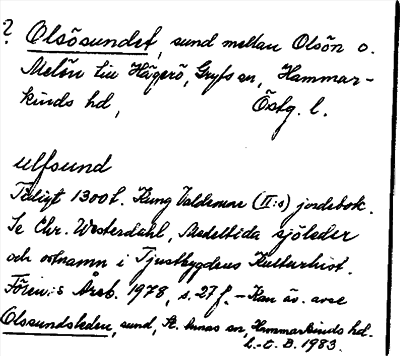 ? Olsösundet, sund mellan Olsön o.
Melön till Hägerö, Gryts sn, Hammar-
kinds hd, Östg. l.
ulfsund
Tidigt 1300 t. Kung Valdemar (II:s) jordebok.
Se Chr. Westerdahl, Medeltida sjöleder
och ortnamn i Tjustbygdens Kulturhist.
Fören:s Årsb. 1978, s. 27 f. – Kan äv. avse
Olssundsleden, sund, St. Annas sn, Hammarkinds hd.
l.-t. B. 1983.